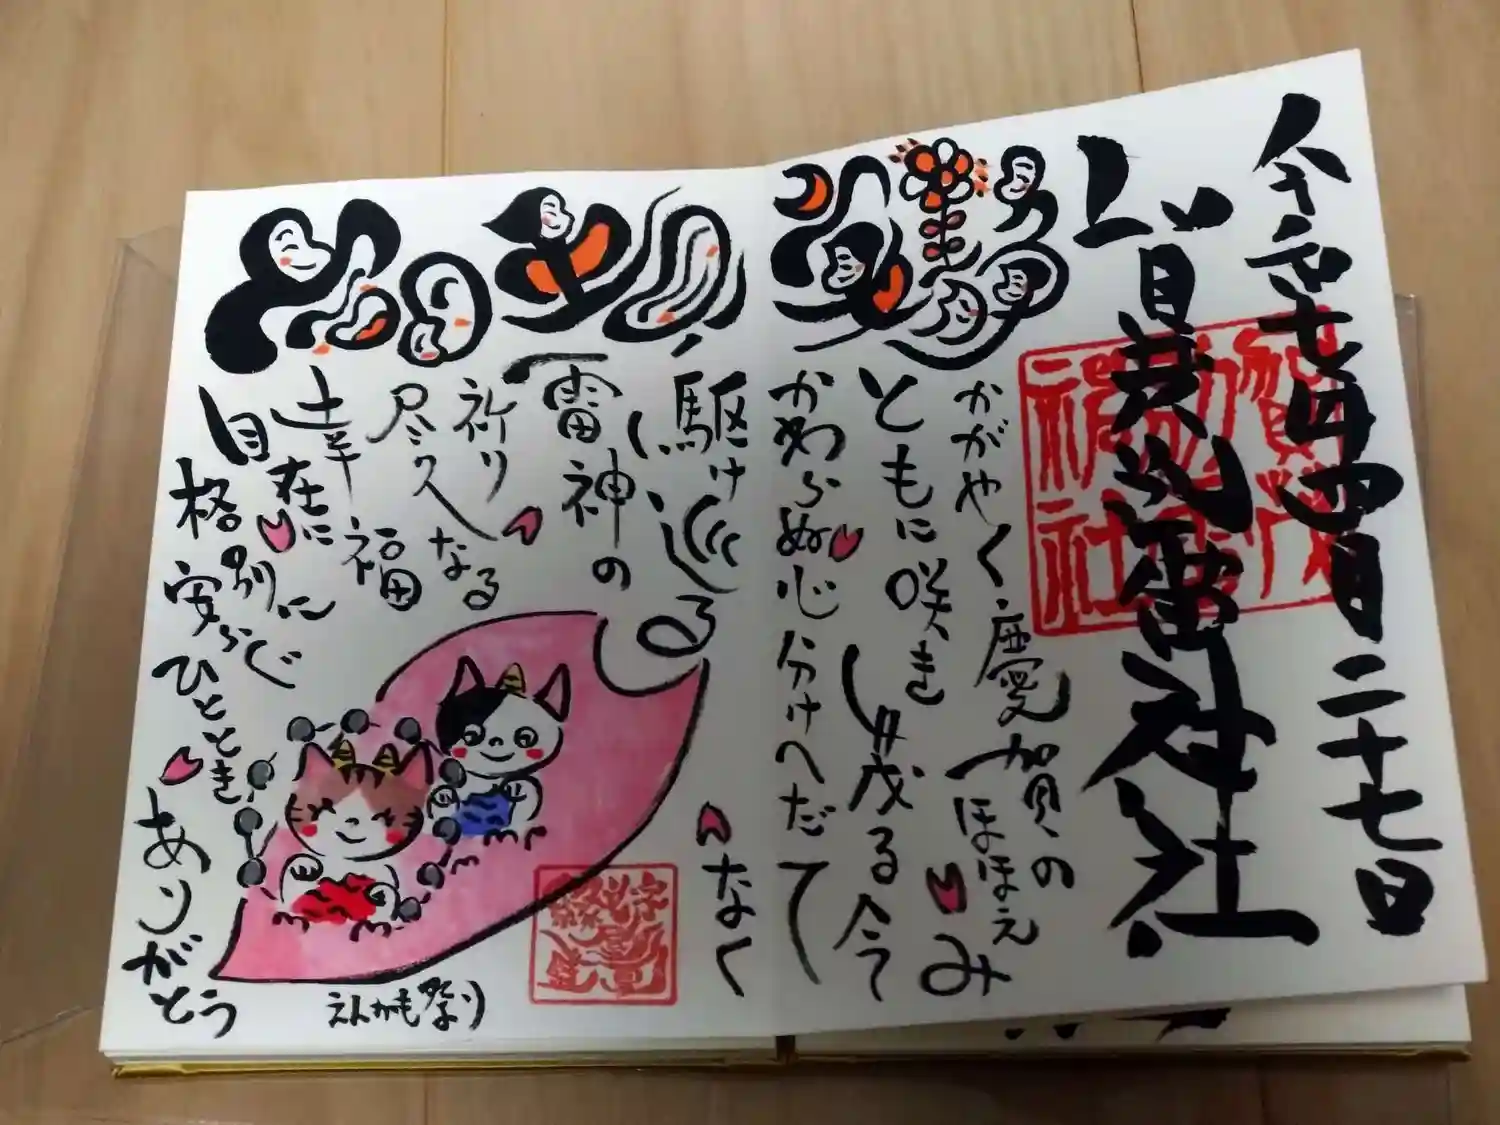 令和七年四月二十七日
賀茂別雷神社
かがやく慶賀の
ほほえみ
ともに咲き
茂る今
かわらぬ心分けへだて
なく
駆け巡る
雷神の
祈り
なる
福
在に
格別に
安らぐひととき
ありがとう
えんかも祭り